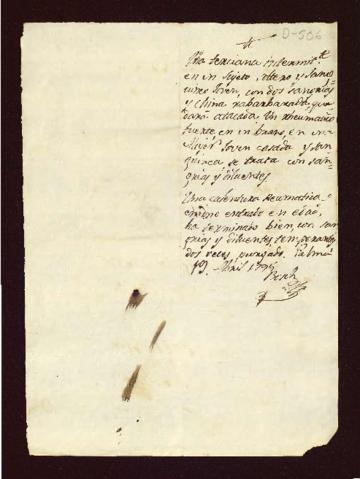 D-506
Una terciana intermite.
en un sujeto, altero y sanc
joven, con dos sangrias
y China rabarbarata, que
atacada. Un rheumatismo
fuerte en un brazo, en una
Muger Joven casada y san
guinea se trata con san
grias y diluentes
Una calentura reumatica
entrado en edad,
ha terminado bien, con san
grias y diluentes, temperantes
dos veces purgado. Palma
19. Abril 1796